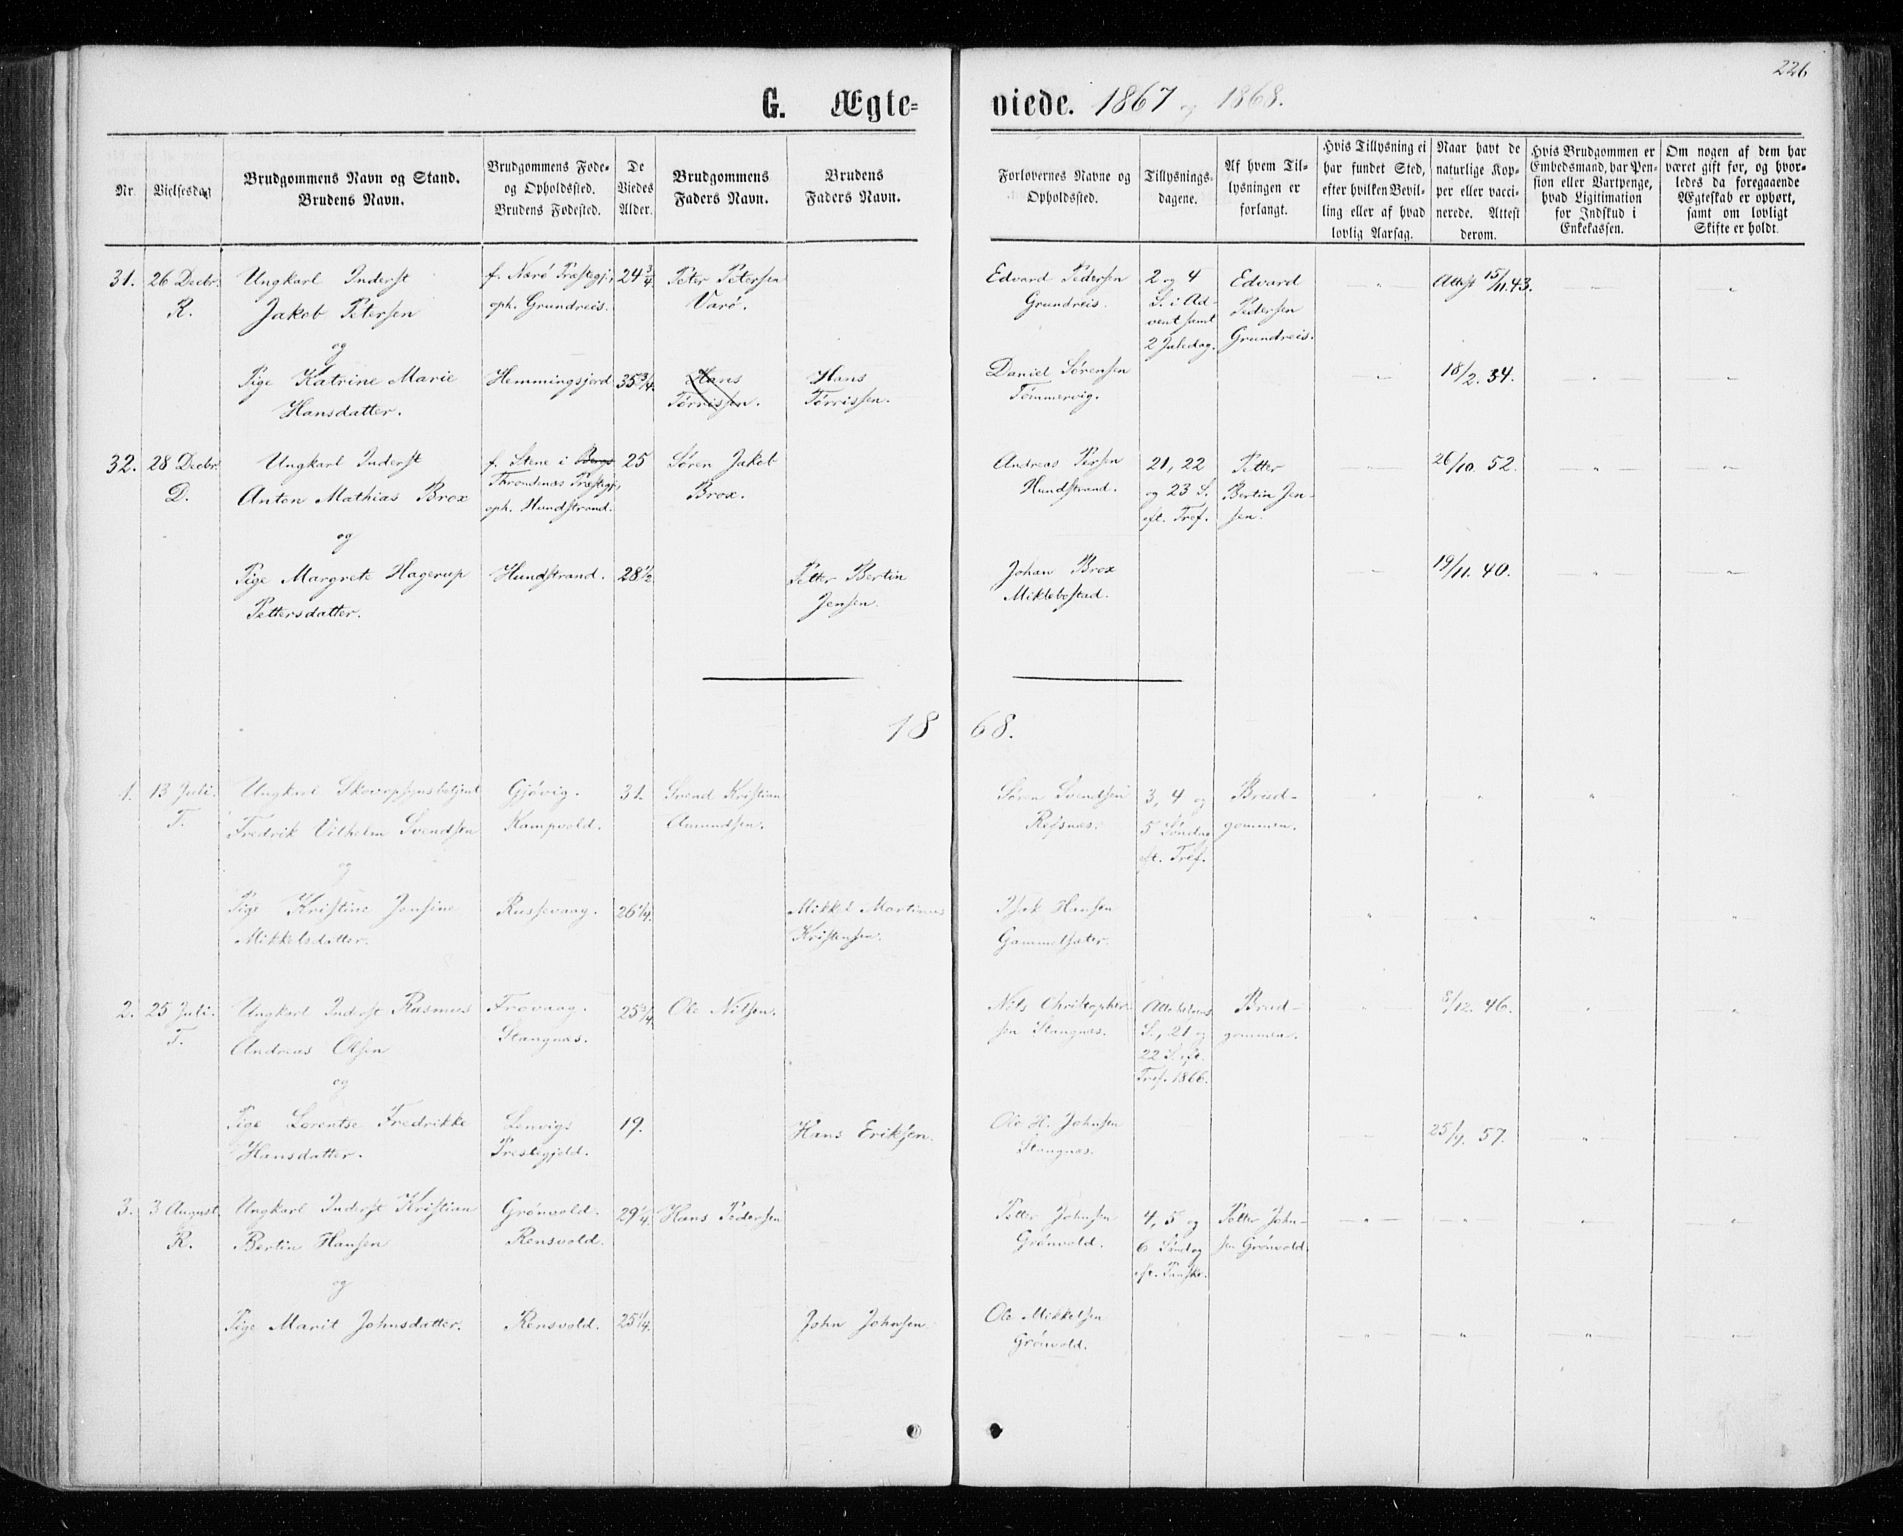 226
G. Ægte=
viede. 1867 og 1868.
Nr.
Vielsesdag
Brudgommens Navn og Stand.
Brudens Navn.
Brudgommens Føde-
og Opholdssted.
Brudens Fødested.
De
Viedes
Alder.
Brudgommens
Faders Navn.
Brudens
Faders Navn.
Forlovernes Navne og
Opholdssted.
Tillysnings-
dagene.
Af hvem Til-
lysningen er
forlangt.
Hvis Tillysning ei
har fundet Sted,
efter hvilken Bevil-
ling eller af hvad
lovlig Aarsag.
Naar havt de
naturlige Kop-
per eller vacci-
nerede. Attest
derom.
Hvis Brudgommen er
Embedsmand, har Pen-
sion eller Vartpenge,
hvad Ligitimation
for Indskud i
Enkekassen.
Om nogen af dem har
været gift før, og hvor-
ledes da foregaaende
Ægteskab er ophørt,
samt om lovligt
Skifte er holdt.
31.
26 Decbr.
R.
Ungkarl Inderst
Jakob Petersen
og
Pige Katrine Marie
Hansdatter.
f. Nærø Præstegj.,
oph. Grundreis.
Hemmingsjord
24 3/4
35 3/4.
Peter Petersen
Varø.
Hans
Tørrissen.
Hans
Tørrissen.
Edvard Pedersen
Grundreis.
Daniel Sørensen
Tømmervig.
2 og 4
S. i Ad-
vent samt
2 Juledag.
Edvard
Pedersen
Grundreis.
Attest 15/11.43.
18/2. 34.
32.
28 Decbr.
D.
Ungkarl Inderst
Anton Mathias Brox
og
Pige Margrete Hagerup
Pettersdatter.
f. Stene i Bergs
Throndenæs Præstegj.,
oph. Hundstrand.
Hundstrand.
25
28 1/2
Søren Jakob
Brox.
Petter Bertin
Jensen.
Andreas Persen
Hundstrand.
Johan Brox
Miklebostad.
21, 22
og 23 S.
eft. Tref.
Petter
Bertin Jen-
sen.
26/10. 52.
19/11. 40.
1868.
1.
13 Juli.
T.
Ungkarl Skovopsynsbetjent
Fredrik Vilhelm Svendsen
og
Pige Kristine Jensine
Mikkelsdatter.
Gjøvig.
Kampvold.
Russevaag.
31.
26 1/4.
Svend Kristian
Amundsen.
Mikkel Martinus
Kristensen.
Søren Svendsen
Refsnæs.
Isak Hansen
Gammelsæter.
3, 4 og
5 Søndag
eft. Tref.
Brud-
gommen.
2.
25 Juli.
T.
Ungkarl Inderst Rasmus
Andreas Olsen
og
Pige Lorentse Fredrikke
Hansdatter.
Frovaag.
Stangnæs.
Lenvigs
Prestegjeld.
25 3/4
19.
Ole Nilsen.
Hans Eriksen.
Nils Christopher-
sen Stangnæs.
Ole H. Johnsen
Stangnæs.
Allehelgens
S., 21 og
22 S. eft.
Tref. 1866.
Brud-
gommen.
8/12. 46.
25/9. 57.
3.
3 August.
R.
Ungkarl Inderst Kristian
Bertin Hansen
og
Pige Marit Johnsdatter.
Grønvold.
Rensvold.
Rensvold.
29 1/4.
25 1/4.
Hans Pedersen
John Johnsen
Petter Johnsen
Grønvold.
Ole Mikkelsen
Grønvold.
4, 5 og
6 Søndag
eft. Paaske.
Petter John-
sen Grønvold.